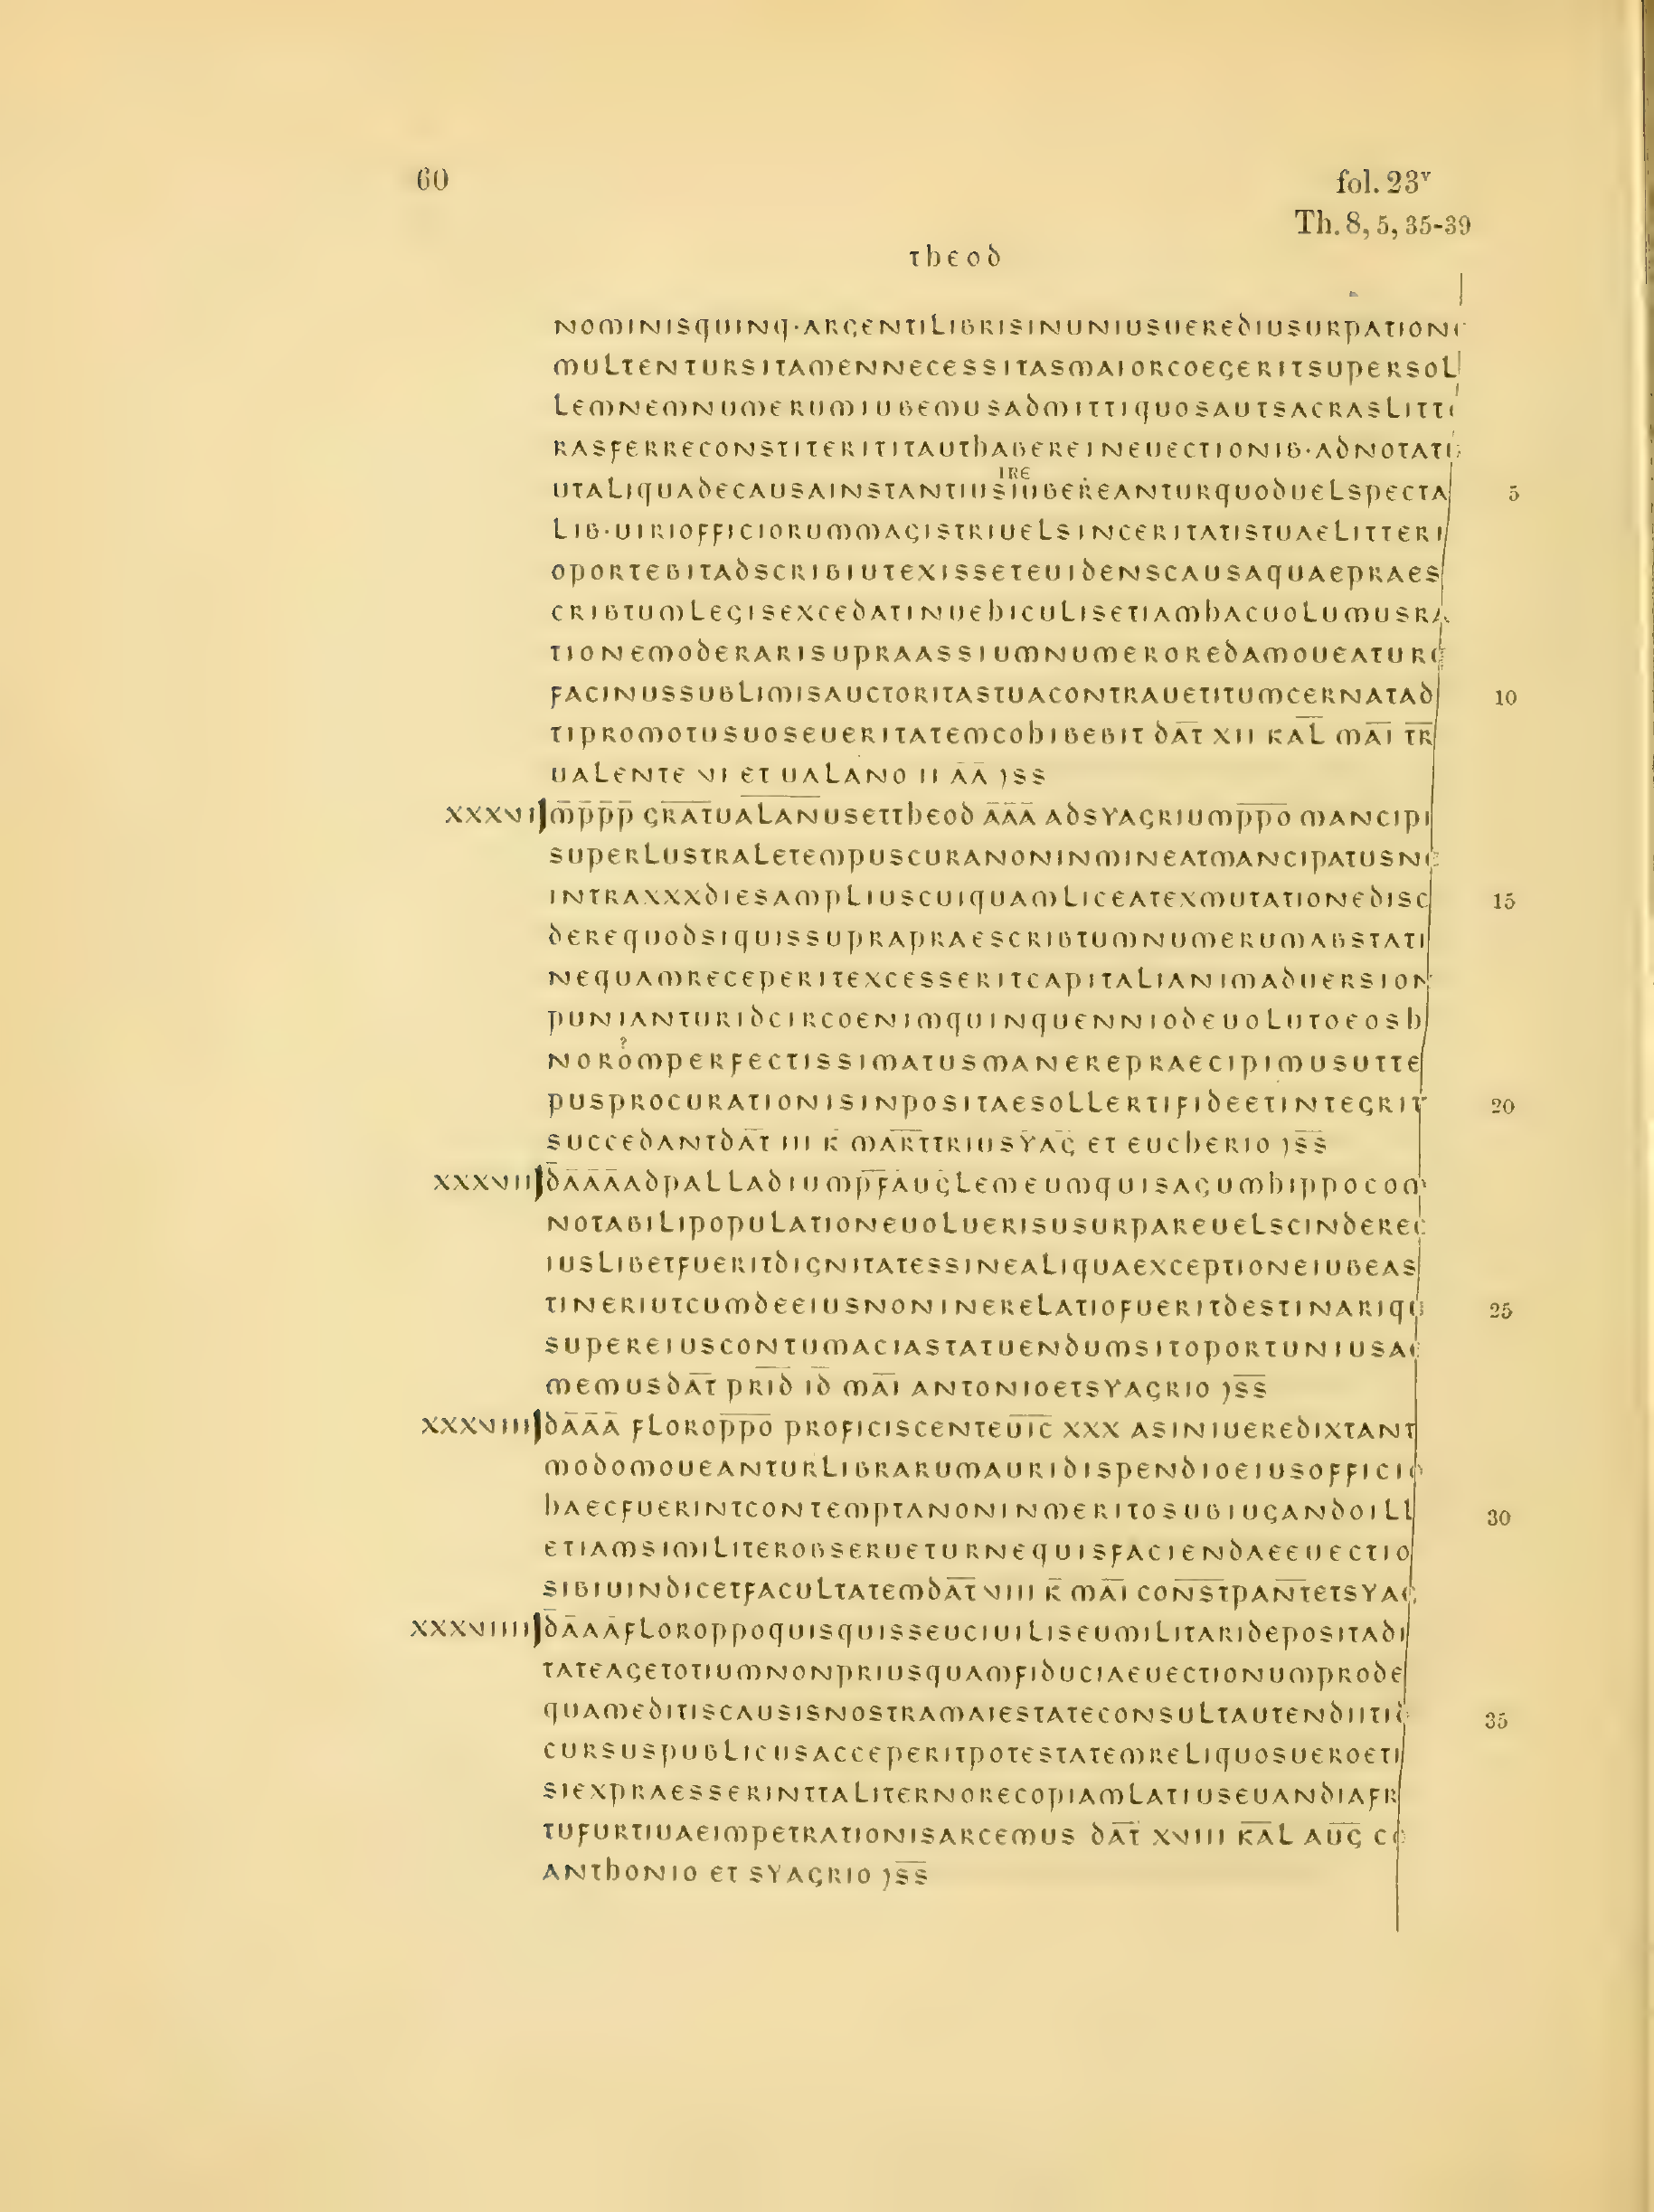 60
fol. 23ᵛ
Th. 8, 5, 35-39
THEOD
NOMINISQUINQ·ARGENTILIBRISINUNIUSUEREDIUSURPATION
MULTENTURSITAMENNECESSITASMAIORCOEGERITSUPERSOL
LEMNEMNUMERUMIUBEMUSADMITTIQUOSAUTSACRASLITT
RASFERRECONSTITERITITAUTHABEREINEUECTIONIB·ADNOTATI
IRE
UTALIQUADECAUSAINSTANTIUSIUBEREANTURQUODUELSPECTA 5
LIB·UIRIOFFICIORUMMAGISTRIUELSINCERITATISTUAELITTERI
OPORTEBITADSCRIBIUTEXISSETEUIDENSCAUSAQUAEPRAES
CRIBTUMLEGISEXCEDATINUEHICULISETIAMHACUOLUMUSRA
TIONEMODERARISUPRAASSIUMNUMEROREDAMOUEATUR
FACINUSSUBLIMISAUCTORITASTUACONTRAUETITUMCERNATAD 10
TIPROMOTUSUOSEUERITATEMCOHIBEBIT DA̅T̅ XII KA̅L̅ MA̅I̅ T̅R̅
UALENTE VI ET UALANO II A̅A̅ )SS
XXXVI M̅P̅P̅P̅ GR̅A̅T̅UA̅L̅A̅N̅USETTHEOD A̅A̅A̅ ADSYAGRIUMP̅P̅O̅ MANCIPI
SUPERLUSTRALETEMPUSCURANONINMINEATMANCIPATUSN
INTRAXXXDIESAMPLIUSCUIQUAMLICEATEXMUTATIONEDISC 15
DEREQUODSIQUISSUPRAPRAESCRIBTUMNUMERUMABSTATI
NEQUAMRECEPERITEXCESSERITCAPITALIANIMADUERSION
PUNIANTURIDCIRCOENIMQUINQUENNIODEUOLUTOEOSH
?
NOROMPERFECTISSIMATUSMANEREPRAECIPIMUSUTTE
PUSPROCURATIONISINPOSITAESOLLERTIFIDEETINTEGRIT 20
SUCCEDANTDA̅T̅ III K̅ MA̅R̅T̅TRIUSY̅A̅G̅ ET EUCHERIO )S̅S̅
XXXVII D̅A̅A̅A̅ADPALLADIUMP̅F̅AU̅G̅LEMEUMQUISAGUMHIPPOCOM
NOTABILIPOPULATIONEUOLUERISUSURPAREUELSCINDERE
IUSLIBETFUERITDIGNITATESSINEALIQUAEXCEPTIONEIUBEAS
TINERIUTCUMDEEIUSNONINERELATIOFUERITDESTINARIQ 25
SUPEREIUSCONTUMACIASTATUENDUMSITOPORTUNIUSA
MEMUSDA̅T̅ PR̅I̅D̅ I̅D̅ MA̅I̅ ANTONIOETSYAGRIO )S̅S̅
XXXVIII D̅A̅A̅A̅ FLOROP̅P̅O̅ PROFICISCENTEU̅I̅C̅ XXX ASINIUEREDIXTANT
MODOMOUEANTURLIBRARUMAURIDISPENDIOEIUSOFFICI
HAECFUERINTCONTEMPTANONINMERITOSUBIUGANDOILL 30
ETIAMSIMILITEROBSERUETURNEQUISFACIENDAEEUECTIO
SIBIUINDICETFACULTATEMDA̅T̅ VIII K̅ MA̅I̅ CON̅S̅T̅PAN̅T̅ETSYAG
XXXVIIII D̅A̅A̅A̅FLOROPPOQUISQUISSEUCIUILISEUMILITARIDEPOSITADI
TATEAGETOTIUMNONPRIUSQUAMFIDUCIAEUECTIONUMPRODE
QUAMEDITISCAUSISNOSTRAMAIESTATECONSULTAUTENDIITI 35
CURSUSPUBLICUSACCEPERITPOTESTATEMRELIQUOSUEROETI
SIEXPRAESSERINTTALITERNORECOPIAMLATIUSEUANDIAFR
TUFURTIUAEIMPETRATIONISARCEMUS DA̅T̅ XVIII K̅A̅L̅ AU̅G̅ C
ANTHONIO ET SYAGRIO )S̅S̅